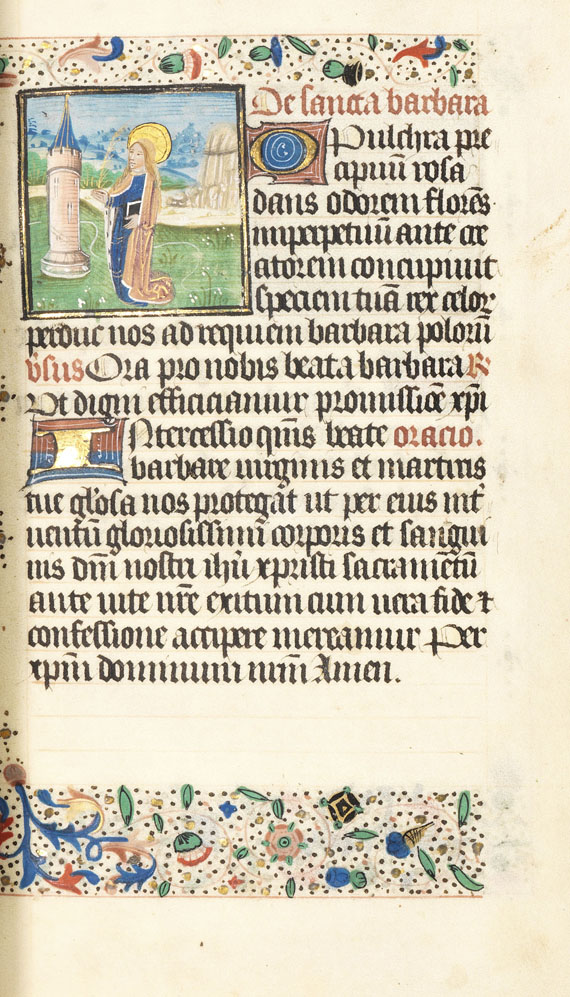 De sancta barbara
O Pulchra pre
cipuũ rosa
dans odorem florẽs
imperpetuũ ante cre
atorem concupiuit
speciem tuã rex celoꝝ
perduc nos ad requiem barbara polorũ
v̉sus Ora pro nobis beata barbara ℟
Vt digni efficiamur promissiõe xp̃i
INtercessio qm̃s beate oracio.
barbare uirginis et martiris
tue gl̉osa nos protegat ut per eius int̉
uentũ gloriosissimi corporis et sangui
nis dm̃ nostri ihũ xpristi sacramẽtũ
ante uite nr̃e exitum cum uera fide ⁊
confessione accipere mereamur Per
xp̃m dominum nrm̃ Amen.